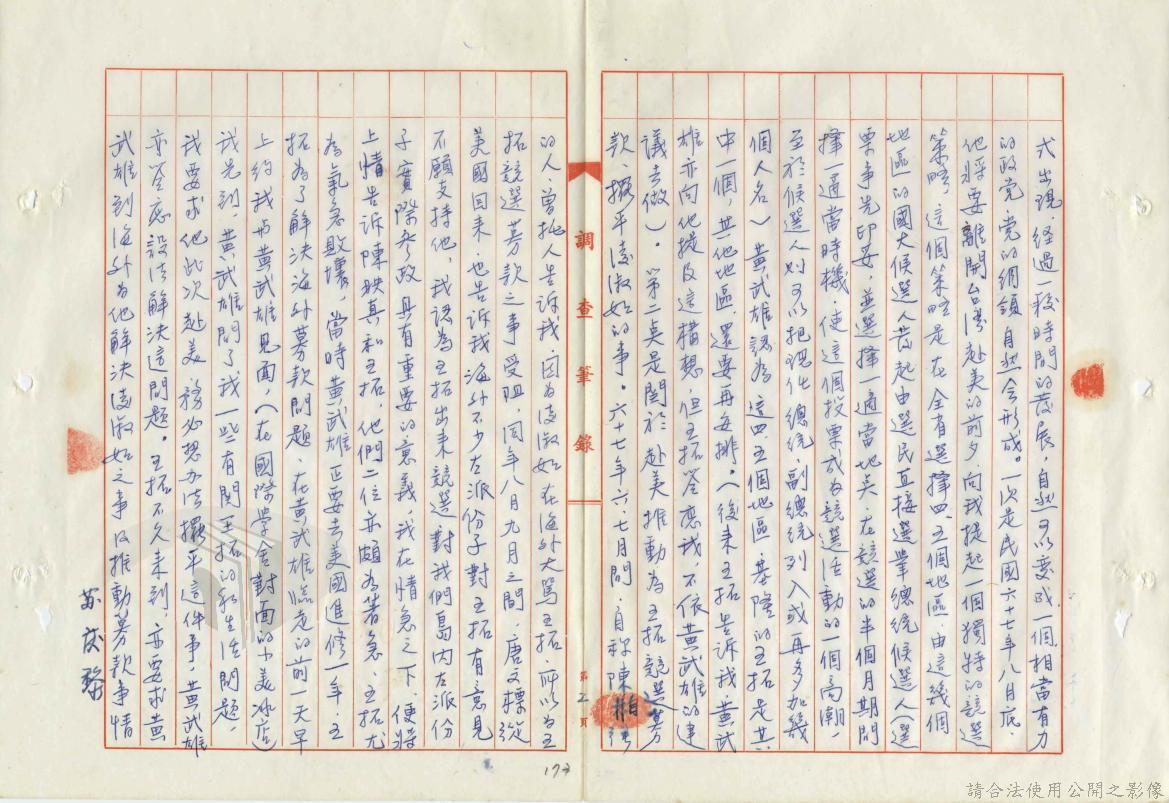 式出現,經過一段時間的發展,自然可以變成一個相當有力
的政党,党的綱領自然会形成。一次是民國六十七年八月底,
他將要離開台灣赴美的前夕,向我提起一個獨特的競選
策略,這個策略是在全省選擇四、五個地區,由這幾個
地區的國大候選人發起由選民直接選舉總統候選人(選
票事先印妥,並選擇一適當地點,在競選的半個月期間
擇一適當時機,使這個投票成為競選活動的一個高潮,
至於候選人則可以把現任總統副總統列入或再多加幾
個人名)黃武雄認為這四、五個地區,基隆的王拓是其
中一個,其他地區還要再安排。(後來王拓告訴我,黃武
雄亦向他提及這構想,但王拓答應我,不依黃武雄的建
議去做)。第二點是関於赴美推動為王拓競選募
款、擺平淩淑如的事。六十七年六、七月間,自称陳
調查筆錄
第2頁
的人曾托人告訴我,因為淩淑如在海外大罵王拓,所以為王
拓競選募款之事受阻,同年八月九月之間,唐文標從
美國回來,也告訴我海外不少左派份子對王拓有意見
不願支持他,我認為王拓出來競選對我們島內左派份
子實際參政具有重要的意義,我在情急之下,便將
上情告訴陳映真和王拓,他們二位亦頗為著急,王拓尤
為氣急敗壞,當時黃武雄正要去美國進修一年,王
拓為了解決海外募款問題,在黃武雄臨走的前一天早
上約我与黃武雄見面,(在國際學舍對面的小美冰店)
我先到,黃武雄問了我一些有関王拓的私生活問題,
我要求他此次赴美務必想办法擺平這件事,黃武雄
亦答應設法解決這問題。王拓不久來到,亦要求黃
武雄到海外為他解決淩淑如之事以推動募款事情
蘇慶黎
173
請合法使用公開之影像